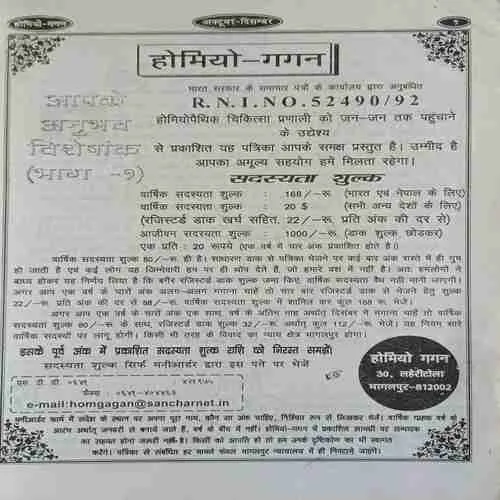 होमियो-गगन
अक्टूबर-दिसम्बर
होमियो-गगन
भारत सरकार के समाचार पत्रों के कार्यालय द्वारा अनुबंधित
R.N.I.NO.52490/92
आपके
अनुभव
विशेषांक
(भाग -१)
होमियोपैथिक चिकित्सा प्रणाली को जन-जन तक पहुंचाने
के उद्देश्य
से प्रकाशित यह पत्रिका आपके समक्ष प्रस्तुत है। उम्मीद है
आपका अमूल्य सहयोग हमें मिलता रहेगा।
सदस्यता शुल्क
वार्षिक सदस्यता शुल्क : 168/-रू. (भारत एवं नेपाल के लिए)
वार्षिक सदस्यता शुल्क : 20 $ (सभी अन्य देशों के लिए)
(रजिस्टर्ड डाक खर्च सहित, 22/-रू. प्रति अंक की दर से)
आजीवन सदस्यता शुल्क : 1000/-रू. (डाक शुल्क छोड़कर)
एक प्रति : 20 रूपये (एक वर्ष में चार अंक प्रकाशित होते है।)
वार्षिक सदस्यता शुल्क 80/-रू. ही है। साधारण डाक से पत्रिका भेजने पर कई बार अंक रास्ते में ही गुम
हो जाती है एवं कई लोग यह जिम्मेवारी हम पर ही थोप देते हैं, जो हमारे वश में नहीं है। अतः हमलोगों ने
बाध्य होकर यह निर्णय लिया है कि बगैर रजिस्टर्ड डाक शुल्क जमा किए, वार्षिक सदस्यता वैध नहीं मानी जाएगी।
अगर आप एक वर्ष के चारों अंक अलग-अलग मंगाना चाहें तो चार बार रजिस्टर्ड डाक से भेजने हेतु शुल्क
22/-रू. प्रति अंक की दर से 88/-रू. वार्षिक सदस्यता शुल्क में शामिल कर कुल 168 रू. भेजें।
अगर आप एक वर्ष के चारों अंक एक साथ, वर्ष के अंतिम माह अर्थात् दिसंबर में मंगाना चाहें तो वार्षिक
सदस्यता शुल्क 80/-रू. के साथ, रजिस्टर्ड डाक शुल्क 32/-रू. अर्थात कुल 112/-रू. भेजें। यह नियम सारे
वार्षिक सदस्यों पर लागू होगी। किसी भी तरह के विवाद का न्याय क्षेत्र भागलपुर होगा।
इसके पूर्व अंक में प्रकाशित सदस्यता शुल्क राशि को निरस्त समझें।
सदस्यता शुल्क सिर्फ मनीआर्डर द्वारा इस पते पर भेजें
होमियो गगन
30, लहेरीटोला
भागलपुर-812002
एस. टी. डी.
e-mail:homgagan@sancharnet.in
मनीआर्डर फार्म में संदेश के स्थान पर अपना पूरा नाम, कौन सा अंक चाहिए, निश्चित रूप से लिखकर भेजें। वार्षिक ग्राहक वर्ष के
आरंभ अर्थात् जनवरी से बनाये जाते हैं, वर्ष के बीच में नहीं। होमियो-गगन में प्रकाशित सामग्री पर सम्पादक
का सहमत होना जरूरी नहीं है। किसी को आपत्ति हो तो हम उनके दृष्टिकोण का भी स्वागत
करेंगे। पत्रिका से संबंधित हर मामले केवल भागलपुर न्यायालय में ही निपटाये जाएंगे।